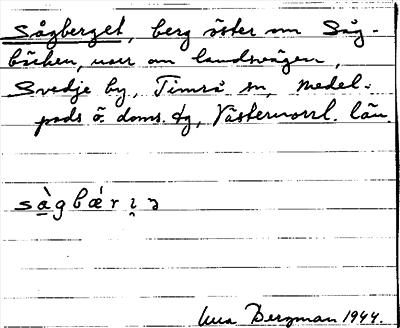 Sågberget, berg öster om Såg-
bäcken, norr om landsvägen,
Svedje by, Timrå sn, Medel-
pads ö. doms. dg, Västernorrl. län.
sàgbǽrıɜ
Bergman 1944.